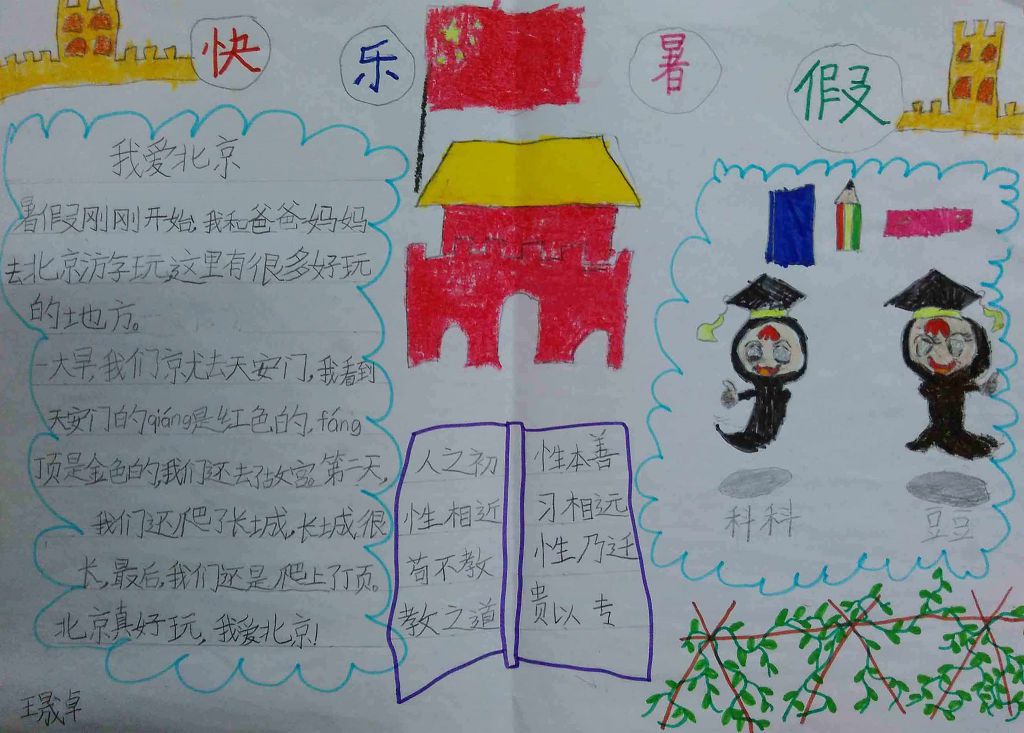 快乐暑假
我爱北京
暑假刚刚开始,我和爸爸妈妈
去北京游字玩,这里有很多好玩
的地方。
一大早,我们京尤去天安门,我看到
天安门的qiáng是红色的,fáng
顶是金色的,我们还去故宫。第二天,
我们还爬了长城,长城很
长,最后,我们还是爬上了顶。
北京真好玩,我爱北京!
王晟卓
人之初
性相近
苟不教
教之道
性本善
习相远
性乃迁
贵以专
科科
豆豆